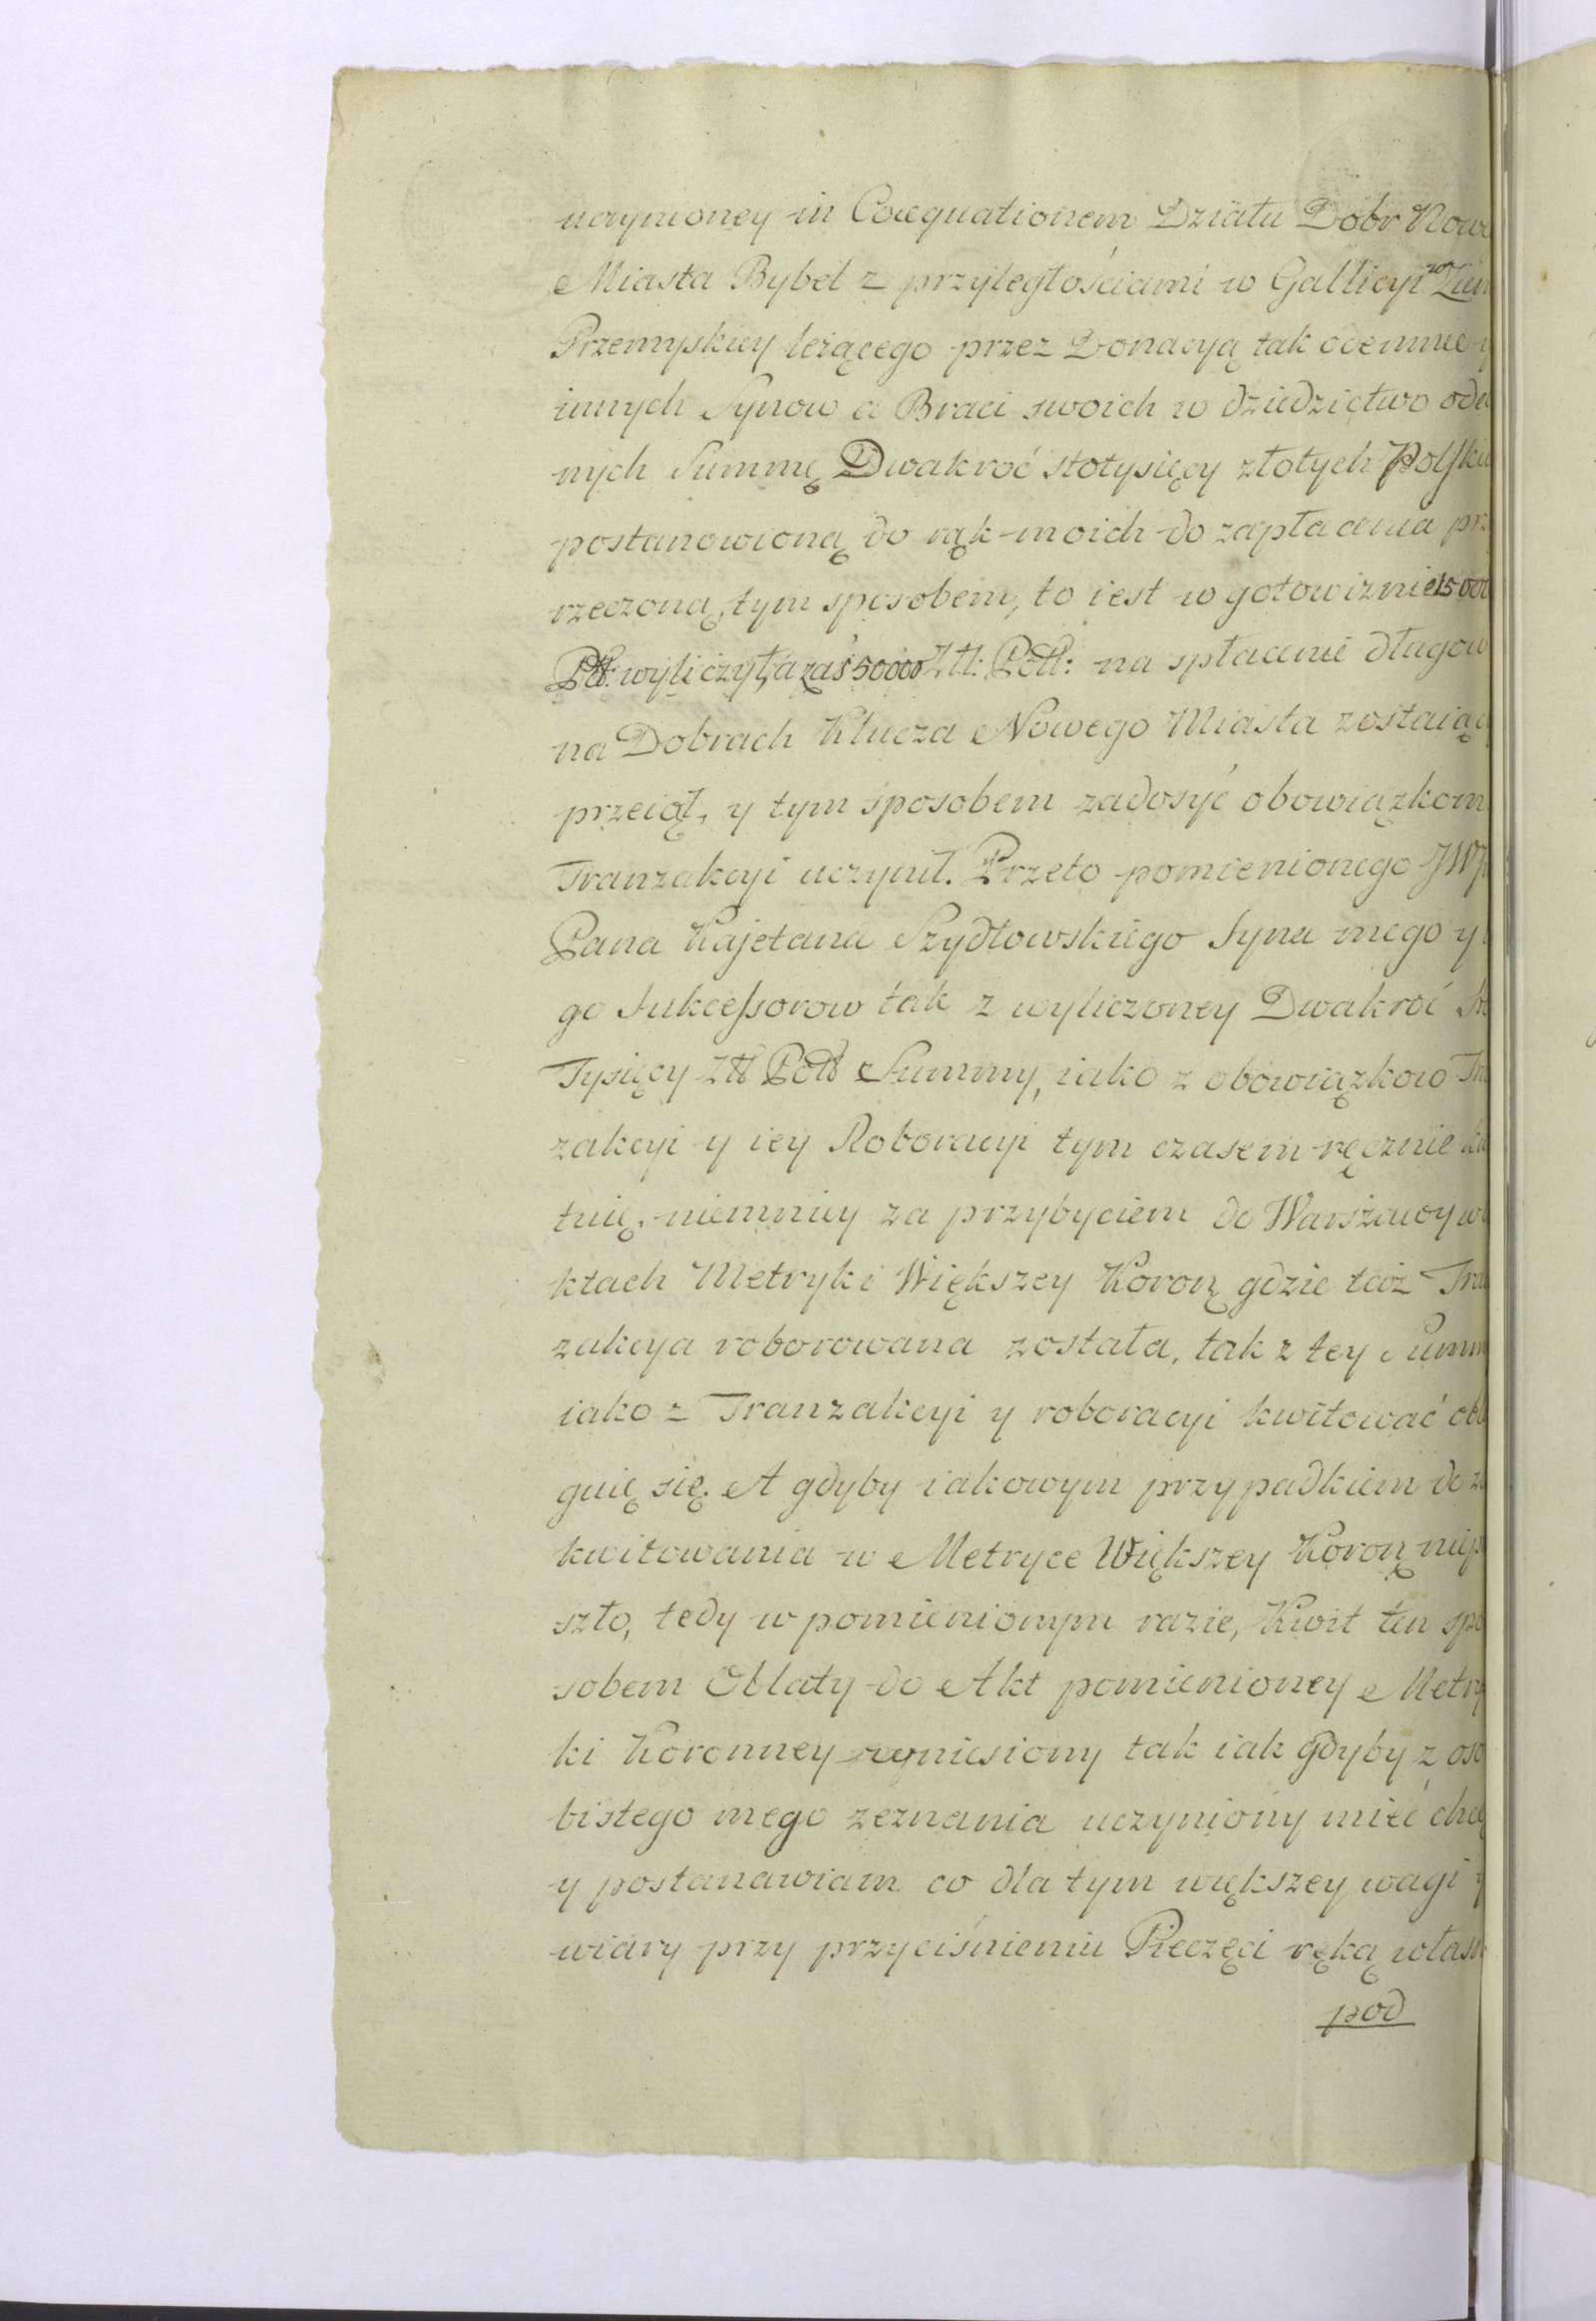 uczynioney in Coæquationem Działu Dobr Nowe
Miasta Bybel z przyległościami w Gallicyi w Ziem
Przemyskiey leżącego przez Donacyą tak odemnie y
innych Synow a Braci swoich w dziedzictwo ode
nych Summę Dwakroć stotysięcy złotych Polskic
postanowioną do rąk moich do zapłacenia prz
rzeczoną, tym sposobem, to iest w gotowiznie 15000
Pol: wyliczył, a zaś 50000 Ztł: Poll: na spłacenie długow
na Dobrach Klucza Nowego Miasta zostaiąc
przeiął, y tym sposobem zadosyć obowiązkom
Tranzakcyi uczynił. Przeto pomienionego JW
Pana Kajetana Szydłowskiego Syna mego y
go Sukcessorow tak z wyliczoney Dwakroć St
Tysięcy Ztł Poll Summy, iako z obowiązkow Tra
zakcyi y iey Roboracyi tym czasem ręcznie kw
tuię, niemniey za przybyciem do Warszawy w
ktach Metryki Większey Koroñ gdzie taż Tra
zakcya roborowana została, tak z tey Summ
iako z Tranzakcyi y roboracyi kwitować obl
guię się. A gdyby iakowym przypadkiem do za
kwitowania w Metryce Większey Koroñ niep
szło, tedy w pomienionym razie, Kwit ten spo
sobem Oblaty do Akt pomienioney Metry
ki Koronney wniesiony tak iak gdyby z oso
bistego mego zeznania uczyniony mieć chcę
y postanawiam co dla tym większey wagi y
wiary przy przyciśnieniu Pieczęci ręką własn
pod